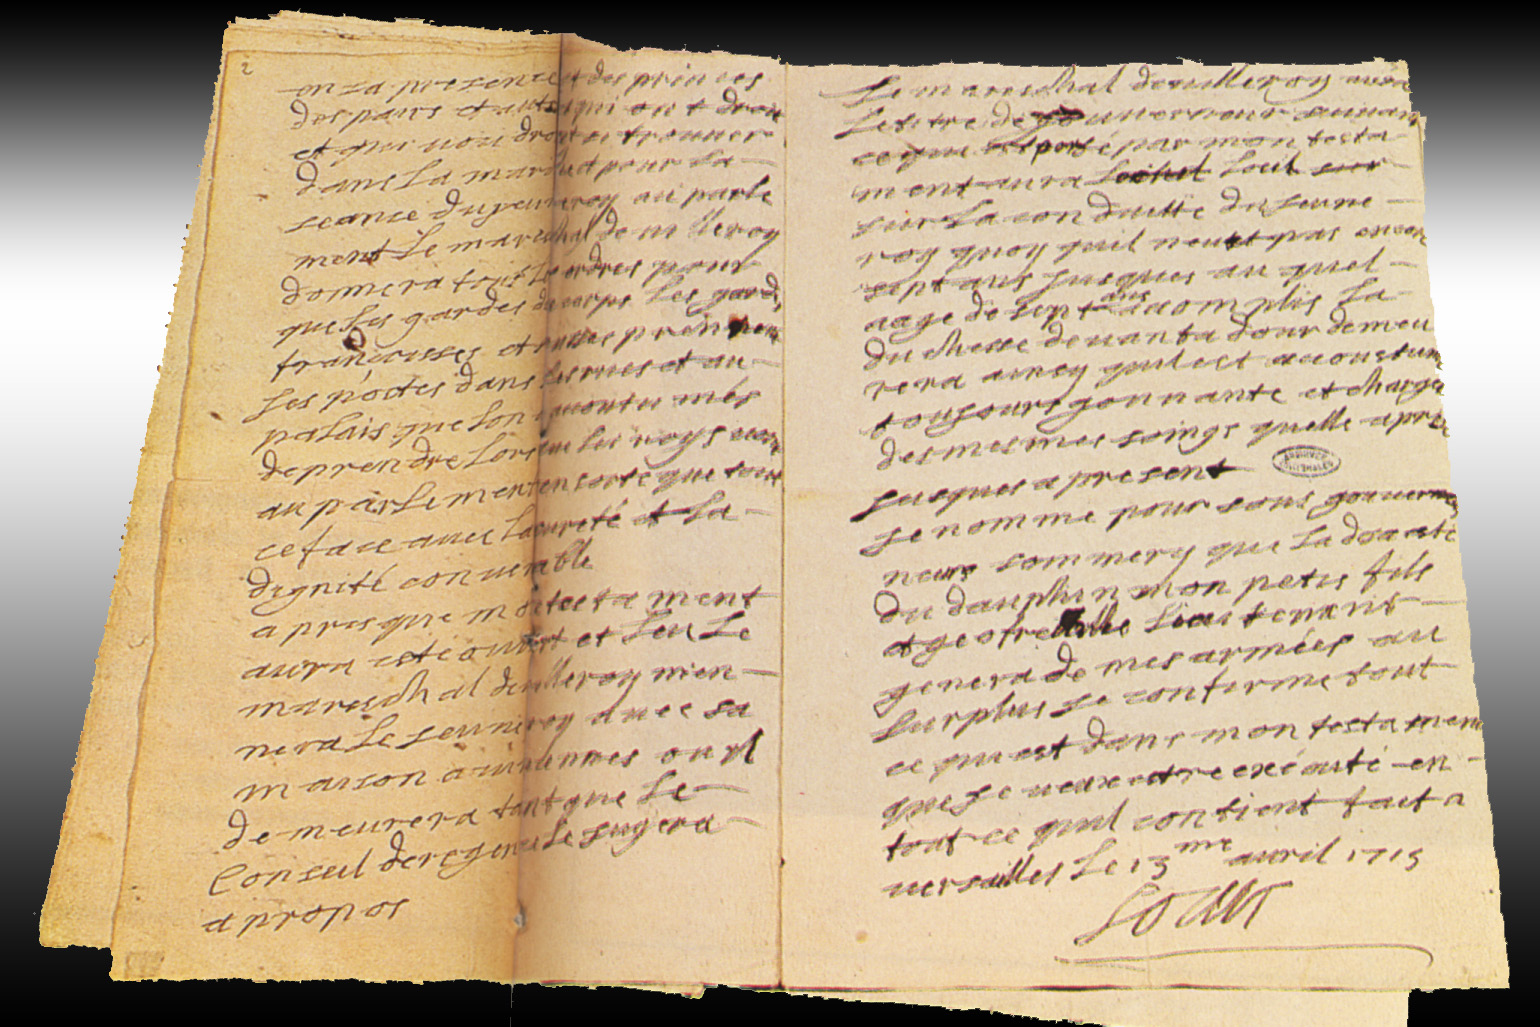 2
en sa presence et des princes
des pairs et autres qui ont droit
et qui voudront si trouver
dans la mard et pour la
seance du jeune roy au parle
ment le mareschal de villeroy
donnera tous les ordres pour
que les gardes du corps les gardes
françaisses et suisses prennent
les postes dans les rues et au
palais que lon a coutumés
de prendre lorsque les roys vont
au parlement en sorte que tout
ce face avec la sureté et la
dignité convenable
apres que mon testament
aura esté ouvert et leu le
mareschal de villeroy mien
nera le jeune roy avec sa
maison a vincennes ou yl
demeurera tant que le
Conseil de regence le jugera
a propos
Le mareschal de villeroy aura
le titre de gouverneur suivant
ce qui est porté par mon testa
ment aura loeil
sur la conduitte du jeune
roy quoy quil neust pas encore
sept ans jusques au quel
aage de sept ans acomplis la
duchesse de vantadour demeu
rera ainsy quil est acoustumé
tousjours gouvernante et chargée
des mesmes soings quelle a pris
jusques a present
ARCHIVES NATIONALES
je nomme pour sous gouver
neurs sommery que la desja esté
du dauphin mon petis fils
et geofreville lieutenant
general de mes armées au
surplus je confirme tout
ce qui est dans mon testament
que je veux estre executé en
tout ce quil contient fait a
versailles le 13me avril 1715
Louis